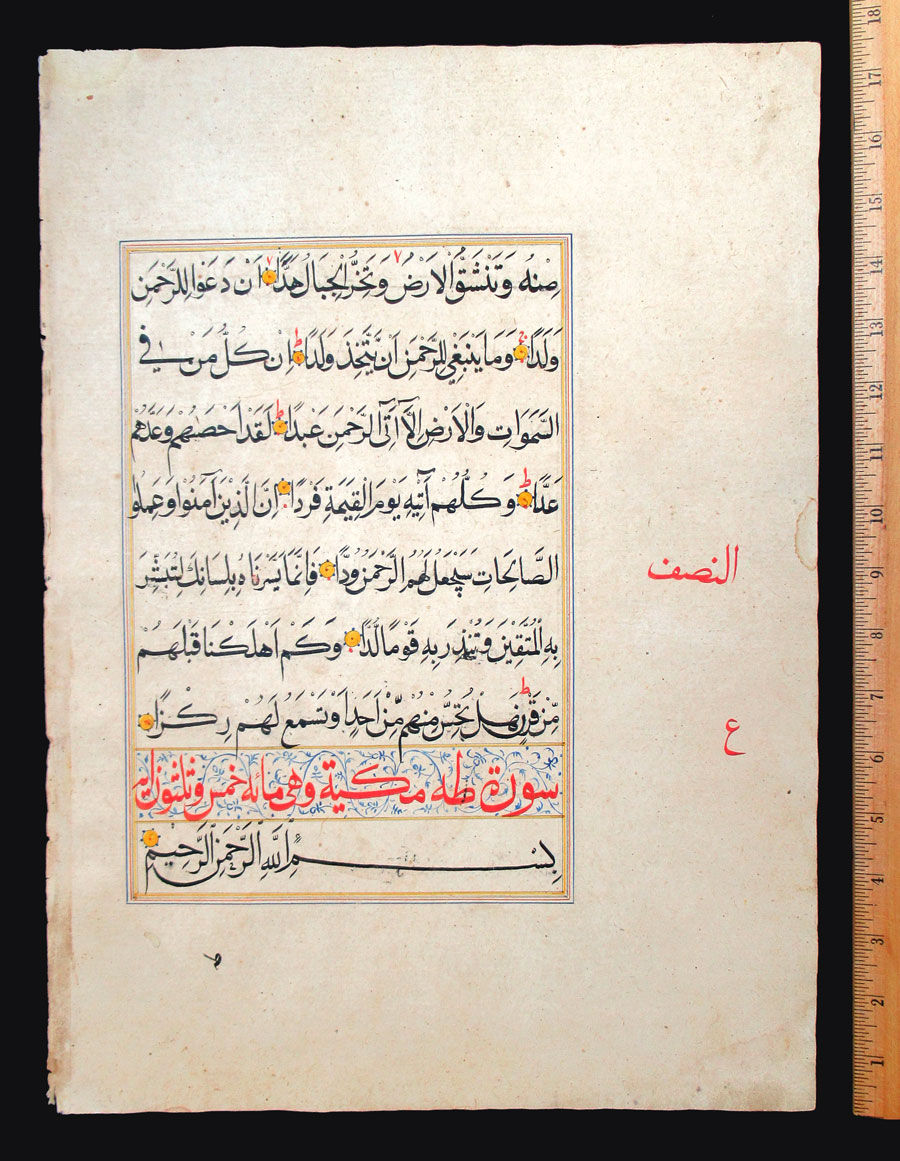 مِنْهُ وَتَنْشَقُّ الْاَرْضُ وَتَخِرُّ الْجِبَالُ هَدًّا اَنْ دَعَوْا لِلرَّحْمٰنِ
وَلَدًا وَمَا يَنْبَغِي لِلرَّحْمٰنِ اَنْ يَتَّخِذَ وَلَدًا اِنْ كُلُّ مَنْ فِي
السَّمَوَاتِ وَالْاَرْضِ اِلَّا آتِى الرَّحْمٰنِ عَبْدًا لَقَدْ اَحْصٰيهُمْ وَعَدَّهُمْ
عَدًّا وَكُلُّهُمْ آتِيهِ يَوْمَ الْقِيٰمَةِ فَرْدًا اِنَّ الَّذِينَ آمَنُوا وَعَمِلُوا
الصَّالِحَاتِ سَيَجْعَلُ لَهُمُ الرَّحْمٰنُ وُدًّا فَاِنَّمَا يَسَّرْنَاهُ بِلِسَانِكَ لِتُبَشِّرَ
بِهِ الْمُتَّقِينَ وَتُنْذِرَ بِهِ قَوْمًا لُدًّا وَكَمْ اَهْلَكْنَا قَبْلَهُمْ
مِنْ قَرْنٍ هَلْ تُحِسُّ مِنْهُمْ مِنْ اَحَدٍ اَوْ تَسْمَعُ لَهُمْ رِكْزًا
سورة طه مكية وهى مائة خمس وثلثون اية
بِسْمِ اللهِ الرَّحْمٰنِ الرَّحِيمِ
النصف
ع
18
17
16
15
14
13
12
11
10
9
8
7
6
5
4
3
2
1